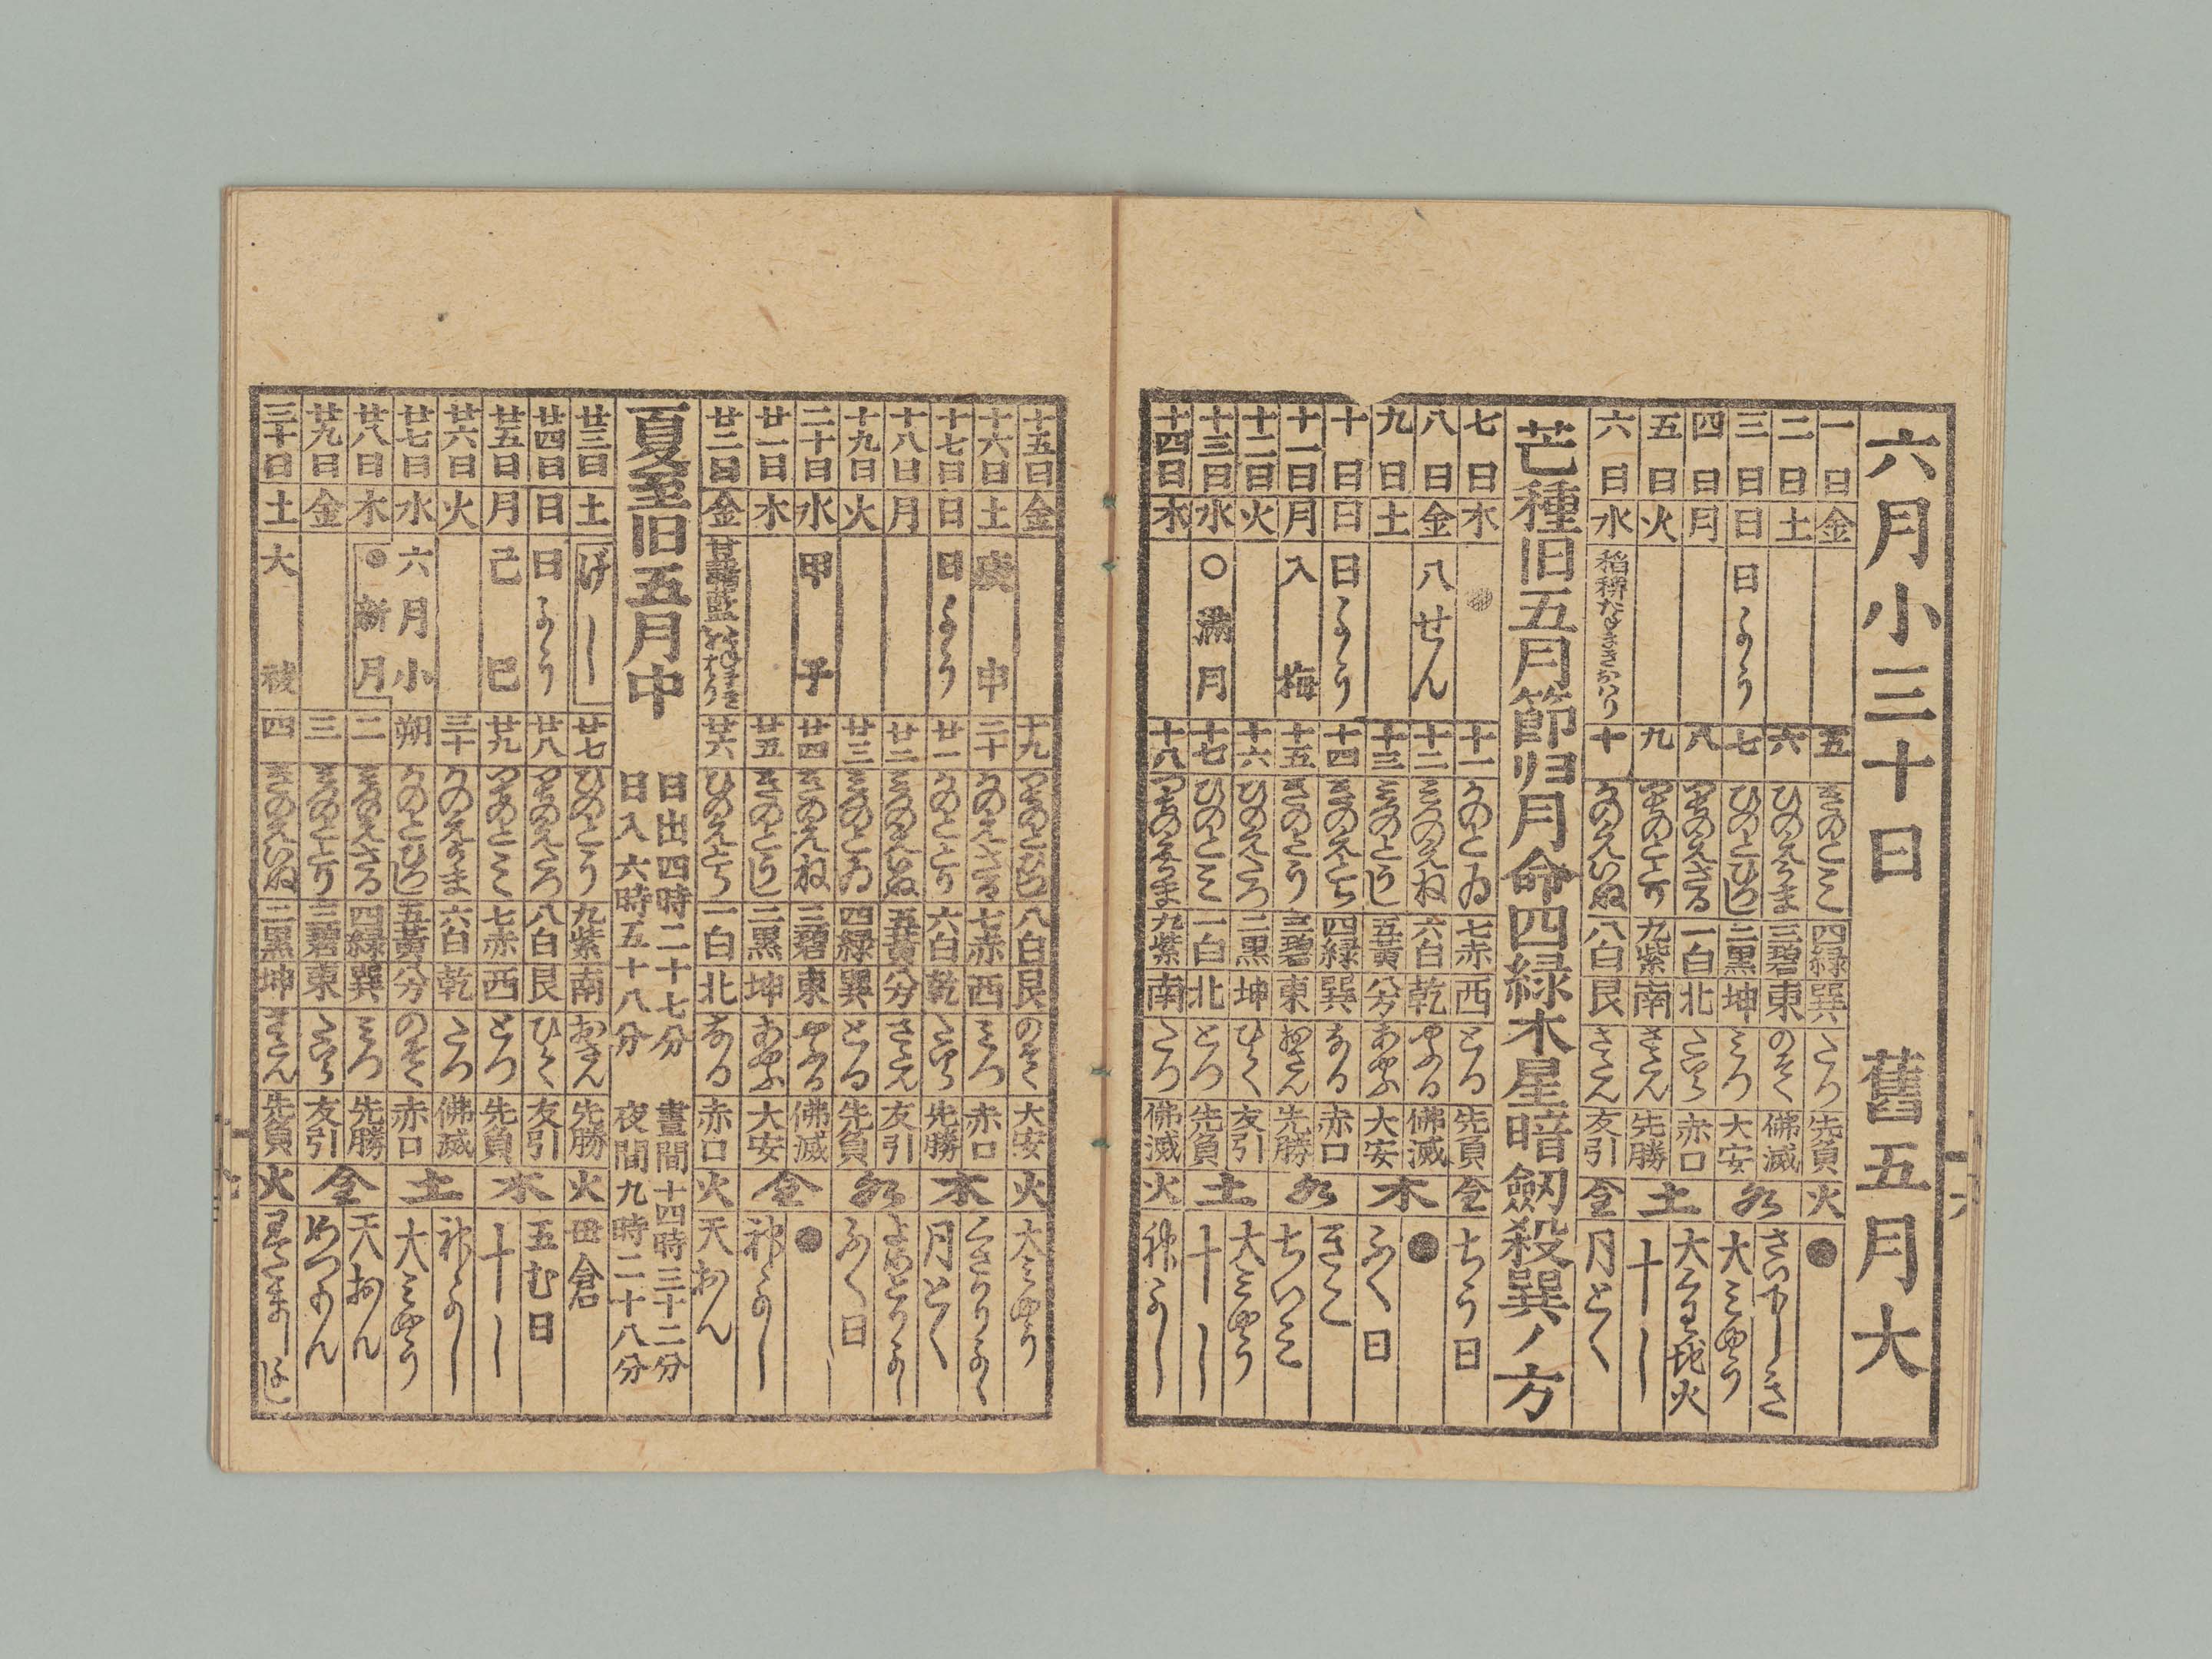 六月小三十日　舊五月大
一日 金 五 きのとミ 四緑 巽 たつ 先負 火 ●
二日 土 六 ひのえうま 三碧 東 のぞく 佛滅
三日 日 日よう 七 ひのとひつじ 二黒 坤 ミつ 大安 水 大ミやう
四日 月 八 つちのえさる 一白 北 たいら 赤口 土
五日 火 九 つちのととり 九紫 南 さだん 先勝 十し
六日 水 十 かのえいぬ 八白 艮 さだん 友引 金 月とく
芒種旧五月節归月命四緑木星暗劔殺巽ノ方
七日 木 十一 かのとゐ 七赤 西 とる 先負 金 ちう日
八日 金 八せん 十二 ミづのえね 六白 乾 やぶる 佛滅 木 ●
九日 土 十三 ミづのとうし 五黄 分 あやぶ 大安 ふく日
十日 日 日よう 十四 きのえとら 四緑 巽 なる 赤口 水 きこ
十一日 月 入梅 十五 きのとう 三碧 東 おさん 先勝 ちいミ
十二日 火 十六 ひのえたつ 二黒 坤 ひらく 友引 土 大ミやう
十三日 水 ○満月 十七 ひのとミ 一白 北 とづ 先負 十し
十四日 木 十八 つちのえうま 九紫 南 たつ 佛滅 火 神よし
十六
十五日 金 十九 つちのとひつじ 八白 艮 のぞく 大安 火 大ミやう
十六日 土 庚申 二十 かのえさる 七赤 西 ミつ 赤口 木
十七日 日 日よう 廿一 かのととり 六白 乾 たいら 先勝 月とく
十八日 月 廿二 ミづのえいぬ 五黄 分 さだん 友引 水 よめとりよし
十九日 火 廿三 ミづのとゐ 四緑 巽 とる 先負 ふく日
二十日 水 甲子 廿四 きのえね 三碧 東 やぶる 佛滅 金 ●
廿一日 木 廿五 きのとうし 二黒 坤 あやぶ 大安 神よし
廿二日 金 廿六 ひのえとら 一白 北 なる 赤口 火 天おん
夏至旧五月中
日出四時二十七分　晝間十四時三十二分
日入六時五十八分　夜間九時二十八分
廿三日 土 げし 廿七 ひのとう 九紫 南 おさん 先勝 火 母倉
廿四日 日 日よう 廿八 つちのえたつ 八白 艮 ひらく 友引 木 五む日
廿五日 月 己巳 廿九 つちのとミ 七赤 西 とづ 先負 十し
廿六日 火 三十 かのえうま 六白 乾 たつ 佛滅 土 神よし
廿七日 水 六月小 朔 かのとひつじ 五黄 分 のぞく 赤口 大ミやう
廿八日 木 ●新月 二 ミづのえさる 四緑 巽 ミつ 先勝 金 天おん
廿九日 金 三 ミづのととり 三碧 東 たいら 友引 めつもん
三十日 土 大祓 四 きのえいぬ 二黒 坤 さだん 先負 火